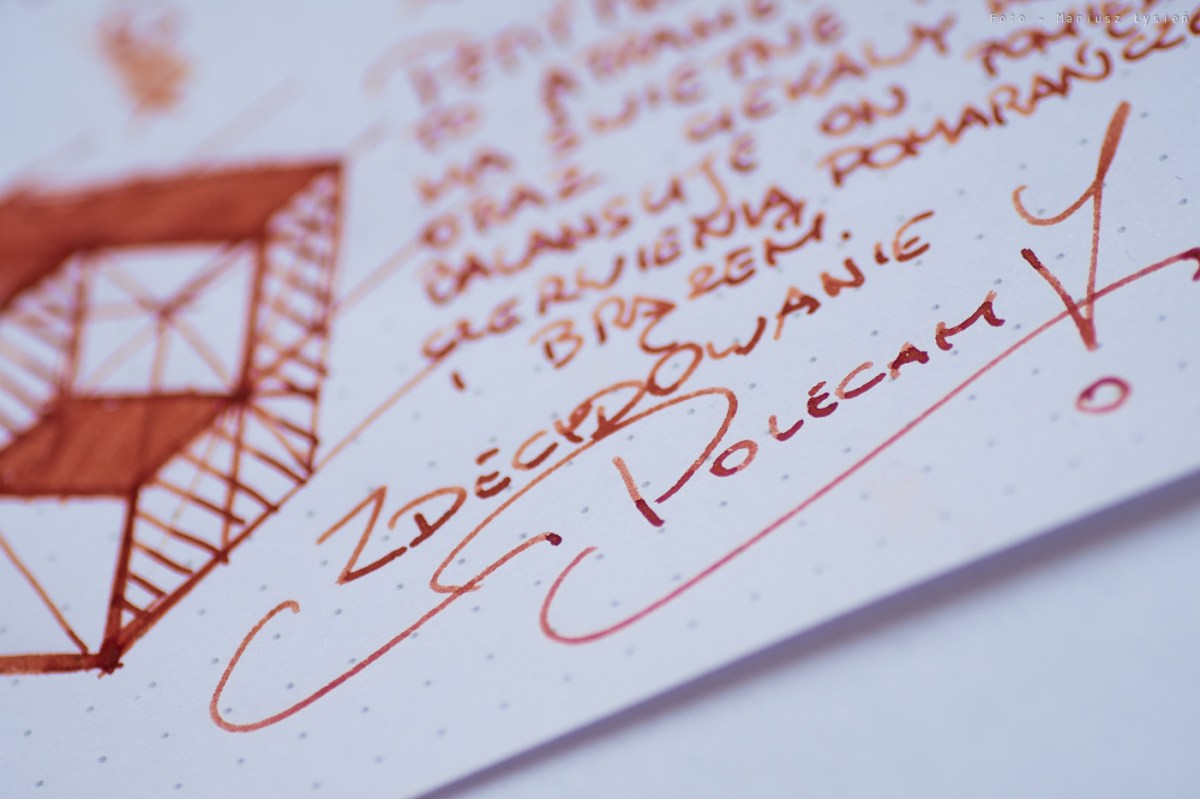 Foto - Mariusz Łysień
MA ŚWIETNE
ORAZ CIEKAWY
BALANSUJE ON POMIĘ
CZERWIENIĄ POMARAŃCZO
I BRĄZEM.
ZDECYDOWANIE
POLECAM!